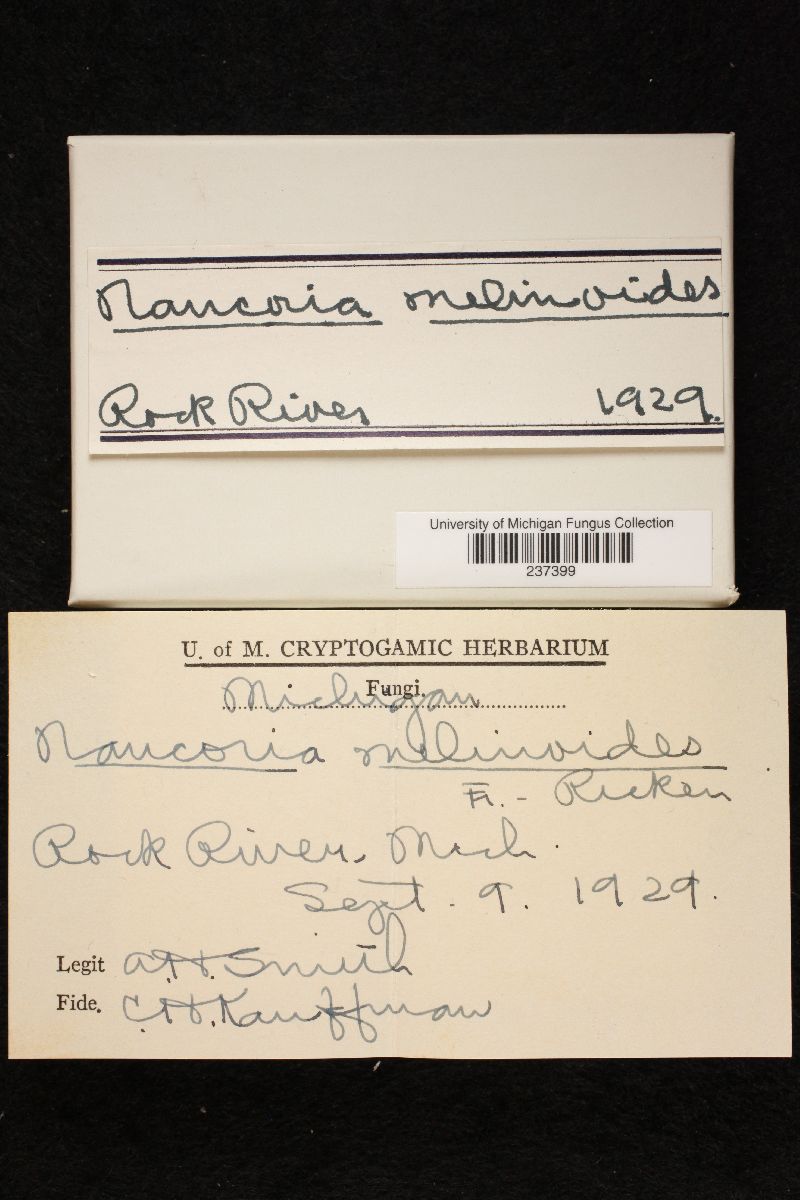 Naucoria melinoides
Rock River 1929.
University of Michigan Fungus Collection
237399
U. of M. CRYPTOGAMIC HERBARIUM
Fungi.
Michigan
Naucoria melinoides
Fr. - Ricken
Rock River, Mich.
Sept. 9. 1929.
Legit A.H. Smith
Fide. C.H. Kauffman